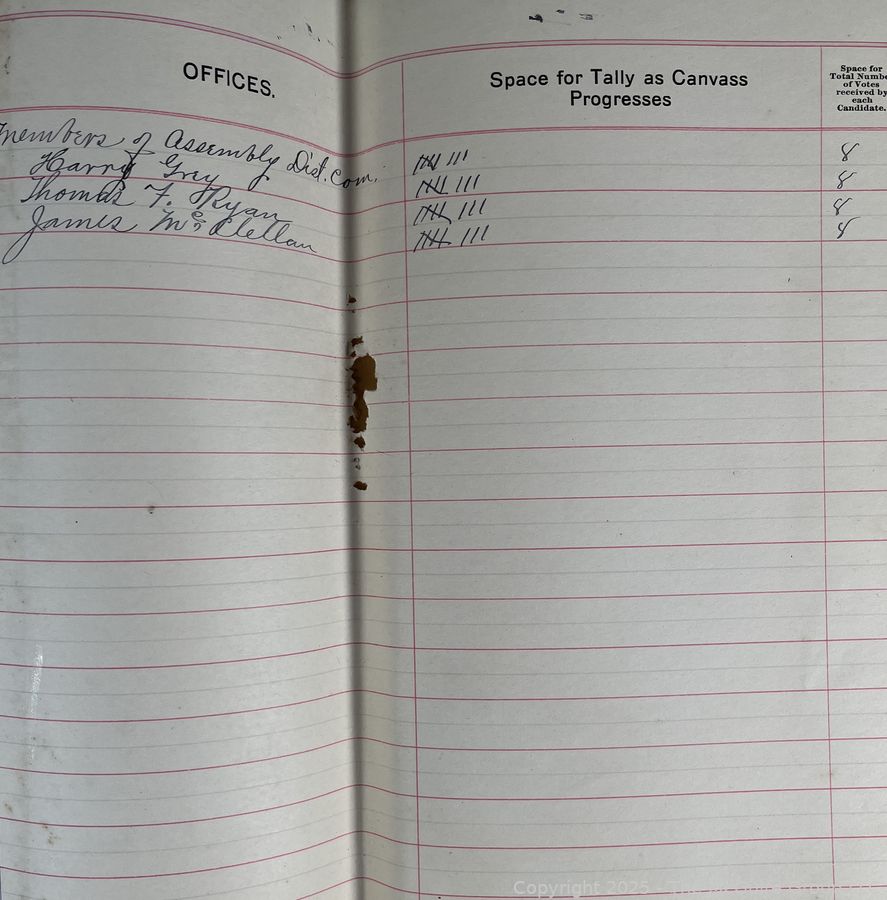 OFFICES.
Space for Tally as Canvass
Progresses
Space for
Total Numbe
of Votes
received by
each
Candidate.
Members of Assembly Dist. Com. 8
Harry Grey 8
Thomas F. Ryan 8
James McClellan 8
Copyright 2025